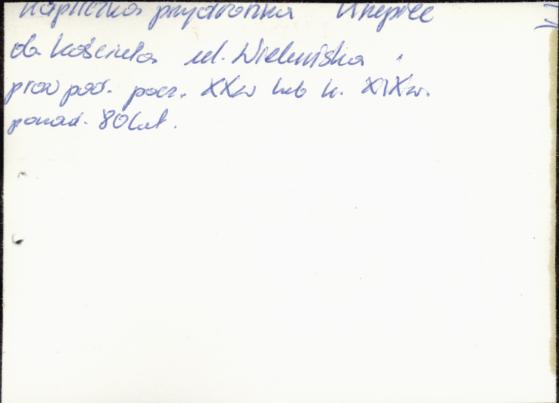 Kapliczka przydrożna Krzepice
ok. kościoła ul. Wieluńska
prawpod. pocz. XXw lub k. XIXw.
ponad. 80 lat.